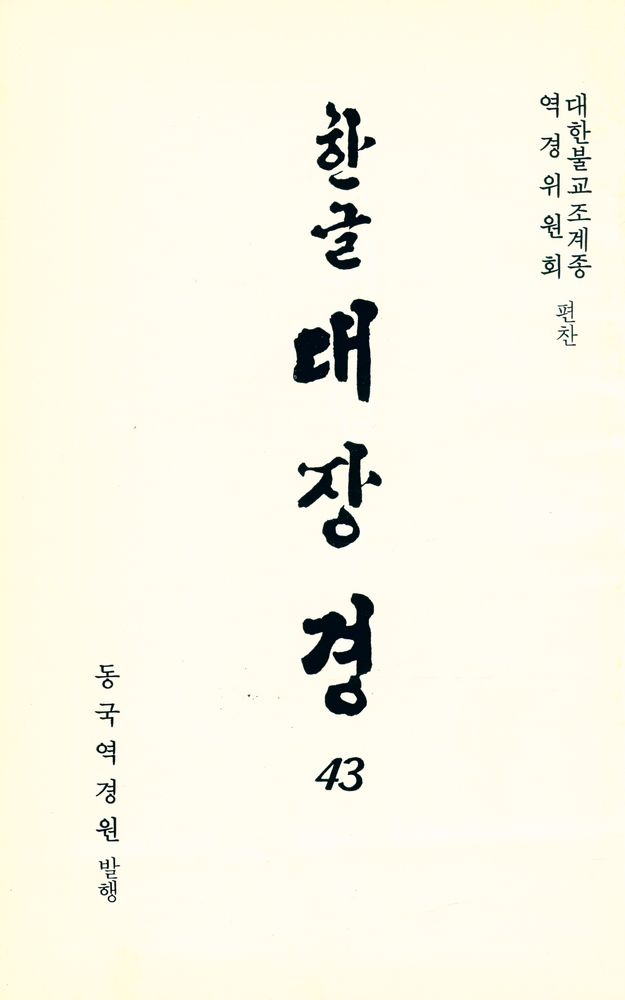 대한불교조계종
역경위원회 편찬
한글대장경 43
동국역경원 발행